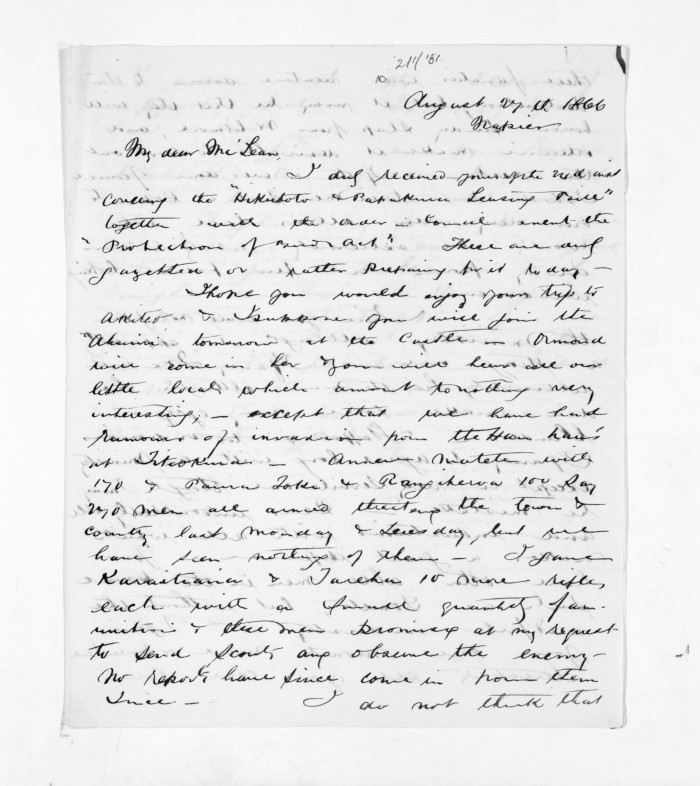 211/61
10
August 27th 1866
Napier
My dear McLean,
I duly received yours of the 22d inst
covering the "Hikutoto & Papakura Leasing
together with the order in Council anent the
"Protection of Act". These are duly
gazetted, or rather preparing for it, today —
I hope you would enjoy your trip to
Akiteo, & I suppose you will join the
"Ahuriri" tomorrow at the Castle — Ormond
will come in her & you will hear all our
little locals which amount to nothing very
interesting, — except that we have had
rumours of invasion from the Hau hau's
at Titiokura — with
170 & Paora Toki & Rangihiroa 100 Say
270 men all armed threatening the town &
country last Monday & Tuesday, but we
have seen nothing of them — I gave
Karaitiana & Tareha 10 more rifles
each with a small quantity of am-
munition & these men promised at my request
to send Scouts and observe the enemy —
No reports have since come in from them
Since — I do not think that